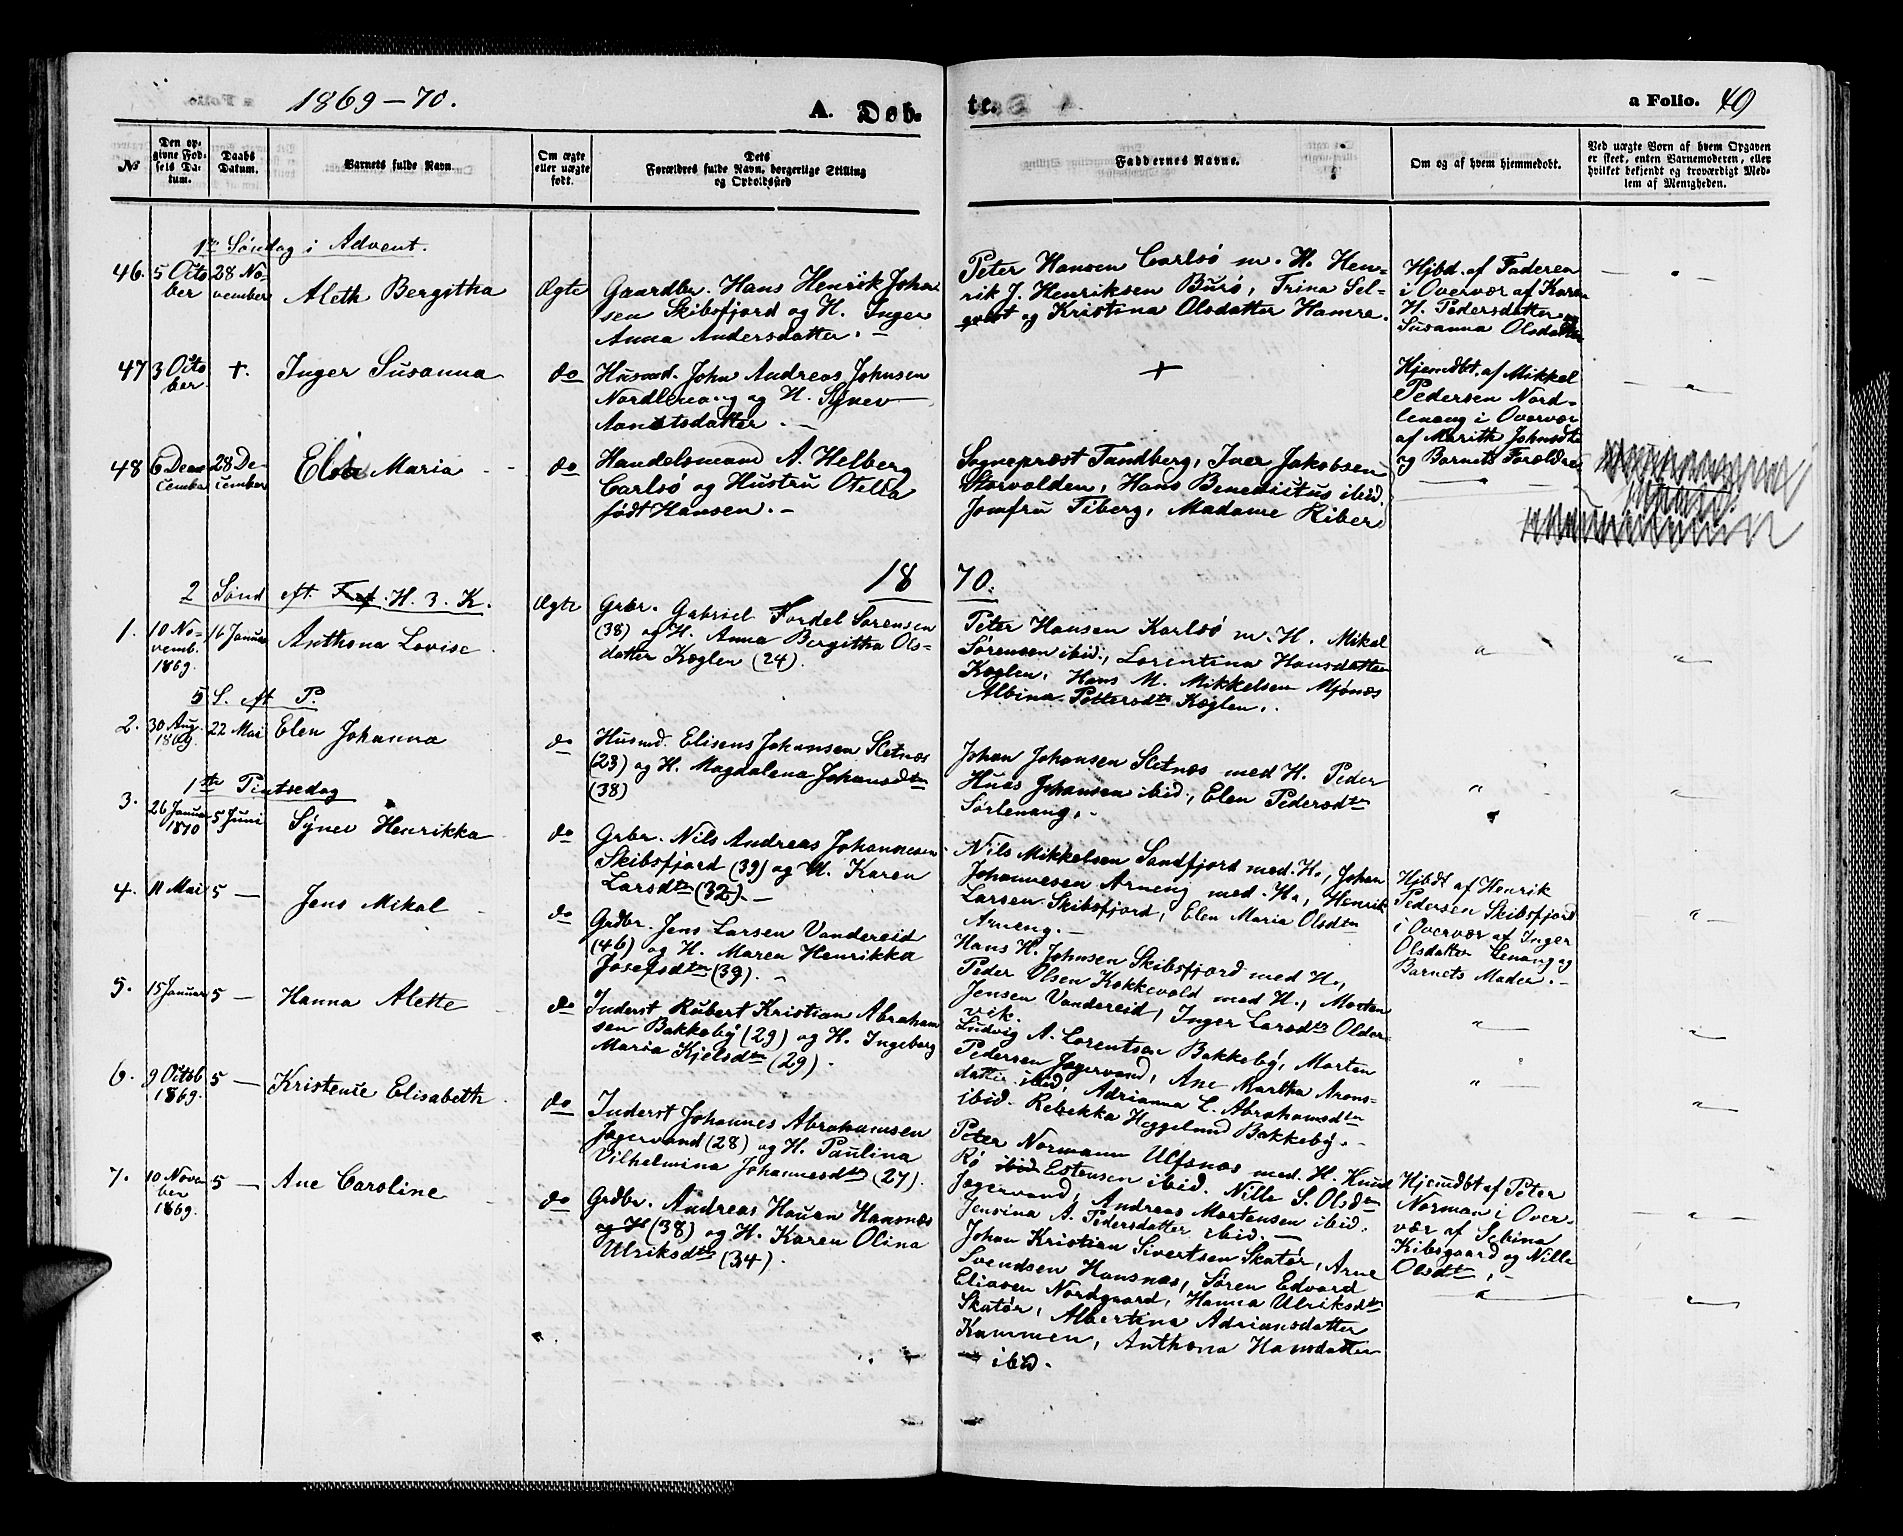 1869-70.
A. Døb-
te.
a Folio. 49
No
Den op-
givne Fød-
sels Da-
tum.
Daabs
Datum.
Barnets fulde Navn.
Om ægte
eller uægte
født.
Dets
Forældres fulde Navn, borgerlige Stilling
og Opholdssted
Faddernes Navne.
Om og af hvem hjemmedøbt.
Ved uægte Børn af hvem Opgaven
er skeet, enten Barnemoderen, eller
hvilket bekjendt og troværdigt Med-
lem af Menigheden.
1ste Søndag i Advent.
46. 5 Octo
ber
28 No-
vember
Aleth Bergitha
Ægte
Gaardbr. Hans Henrik Johan
sen Skibsfjord og H. Inger
Anna Andersdatter. -
Peter Hansen Carlsø m. H. Hen-
rik J. Henriksen Burø, Trina Sel-
qvist og Kristina Olsdatter Hamre.
Hjbd. af Faderen
i Overvær af Karen
H. Pedersdatter og
Susanna Olsdatter
47 3 Octo
ber
+.
Inger Susanna
do
Husmd. John Andreas Johnsen
Nordlenang og H. Synev
Aanetsdatter. -
+
Hjemdbt. af Mikkel
Pedersen Nord-
lenang i Overvær
af Marith Johnsdtr
og Barnets Forældre
48 6 De-
cember
28 De-
cember
Elsa Maria
do
Handelsmand A. Helberg
Carlsø og Hustru Otelia
født Hansen. -
Sognepræst Tandberg, Iver Jakobsen
Storvolden, Hans Benedictus ibid.
Jomfru Tiberg, Madame Riber
1870.
2 Sønd eft. H. 3. K.
1. 10 No-
vemb.
1869.
16 Januar
Anthona Lovise
Ægte
Grbr. Gabriel Fordel Sørensen
(38) og H. Anna Bergitha Ols-
datter Køglen (24).
Peter Hansen Karlsø m. H. Mikal
Sørensen ibid., Lorentina Hansdatter
Køglen, Hans M. Mikkelsen Mjønæs
Albina Pettersdtr Køglen.
5 S. eft P.
2. 30 Aug.
1869.
22 Mai
Elen Johanna
do
Husmd. Elisens Johansen Sletnæs
(23) og H. Magdalena Johansdtr
(38)
Johan Johansen Sletnæs med H. Peder
Huas Johansen ibid., Elen Pedersdtr
Sørlenang. -
1ste Pintsedag
3. 26 Januar
1870
5 Juni
Synev Henrikka
do
Grbr. Nils Andreas Johannesen
Skibsfjord (39) og H. Karen
Larsdtr (32). -
Nils Mikkelsen Sandfjord med H., Johan
Johannesen Arneng med H., Henrik
Larsen Skibsfjord, Elen Maria Olsdtr
Arneng. -
4. 11 Mai
5 -
Jens Mikal
do
Grdbr. Jens Larsen Vandereid
(46) og H. Maren Henrikka
Josefsdtr (39). -
Hans H. Johnsen Skibsfjord med H.,
Peder Olsen Kokkevold med H., Morten
Jensen Vandereid, Inger Larsdtr Older-
vik.
Hjbdt af Henrik
Pedersen Skibsfjord
i Overvær af Inger
Olsdatter Lenang og
Barnets Moder. -
5. 15 Januar
5 -
Hanna Alette
do
Inderst Rubert Kristian Abraham
sen Bakkeby (29) og H. Ingeborg
Maria Kjelsdtr (29).
Ludvig A. Lorentsen Bakkeby, Morten
Pedersen Jægervand, Ane Martha Arons-
datter ibid, Adrianna L. Abrahamsdtr
ibid. Rebekka Heggelund Bakkeby. -
6. 9 Octob
1869.
5 -
Kristense Elisabeth
do
Inderst Johannes Abrahamsen
Jægervand (28) og H. Paulina
Vilhelmina Johannesdtr (27).
Peter Normann Ulfsnæs med H. Knud
Rø ibid Estensen ibid. Nille S. Olsdtr
Jægervand, Andreas Mortensen ibid.
Jensina A. Pedersdatter ibid. -
Hjemdbt af Peter
Norman i Over-
vær af Sebina
Kibsgaard og Nille
Olsdtr, -
7. 10 Novem
ber
1869.
5 -
Ane Caroline
do
Grdbr. Andreas Hauan Hansnæs
og H (38) og H. Karen Olina
Ulriksdtr (34).
Johan Kristian Sivertsen Skatør, Arne
Svendsen Hansnæs, Søren Edvard
Eliasen Nordgaard, Hanna Ulriksdtr
Skatør, Albertina Adriansdatter
Kammen, Anthona Hansdatter
ibid.